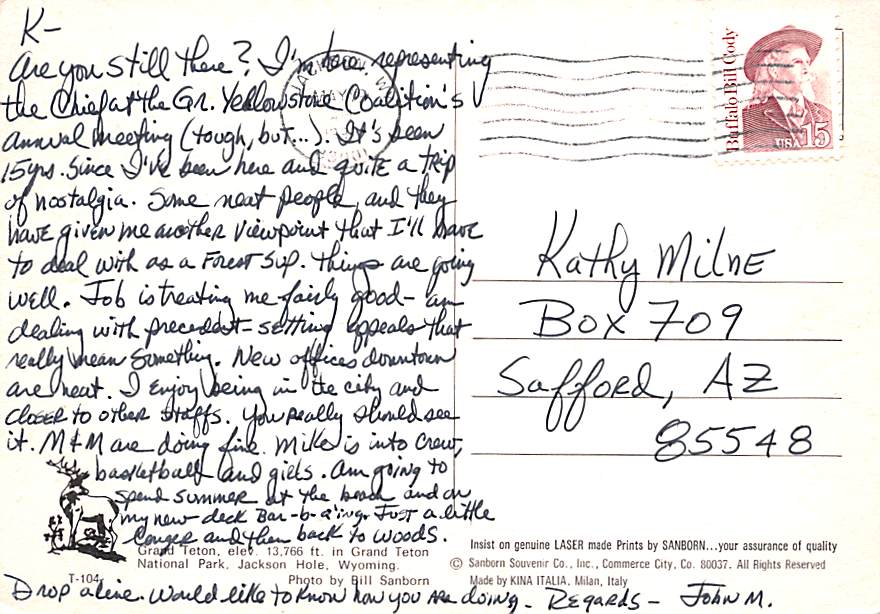 K-
Are you still there? I'm here representing
the Chief at the Gr. Yellowstone Coalition's
annual meeting (tough, but...). It's been
15 yrs. since I've been here and quite a trip
of nostalgia. Some neat people, and they
have given me another viewpoint that I'll have
to deal with as a Forest Sup. Things are going
well. Job is treating me fairly good - am
dealing with precedent-setting appeals that
really mean something. New offices downtown
are neat. I enjoy being in the city and
closer to other staffs. You really should see
it. M+M are doing fine. Mike is into crew,
basketball and girls. Am going to
spend summer at the beach and on
my new deck Bar-b-q'ing. Just a little
longer and then back to woods.
Drop a line. Would like to know how you are doing. Regards - John M.
Grand Teton, elev. 13,766 ft. in Grand Teton
National Park, Jackson Hole, Wyoming.
T-104
Photo by Bill Sanborn
Buffalo Bill Cody
USA 15
Kathy Milne
Box 709
Safford, AZ
85548
Insist on genuine LASER made Prints by SANBORN...your assurance of quality
© Sanborn Souvenir Co., Inc., Commerce City, Co. 80037. All Rights Reserved
Made by KINA ITALIA, Milan, Italy